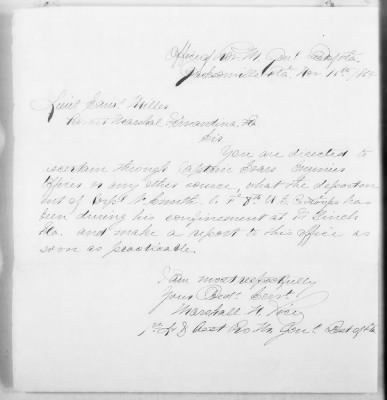 Office of Pro. M. Genl. Dept Fla.
Jacksonville Fla. Nov 18th /65
Lieut Saml Miller
Provost Marshal Fernandina Fla
Sir
You are directed to
ascertain through Captain
Office or any other source, what the deportm
ent of Corpl Smith. C. F 8th U.S. C. Troops has
been during his confinement at Ft Clinch
Fla. and make a report to this office as
soon as practicable.
I am most respectfully
Your Obdt. Servt
Marshall N.
1st Lt & Asst Pro Mr Genl. Dept of Fla